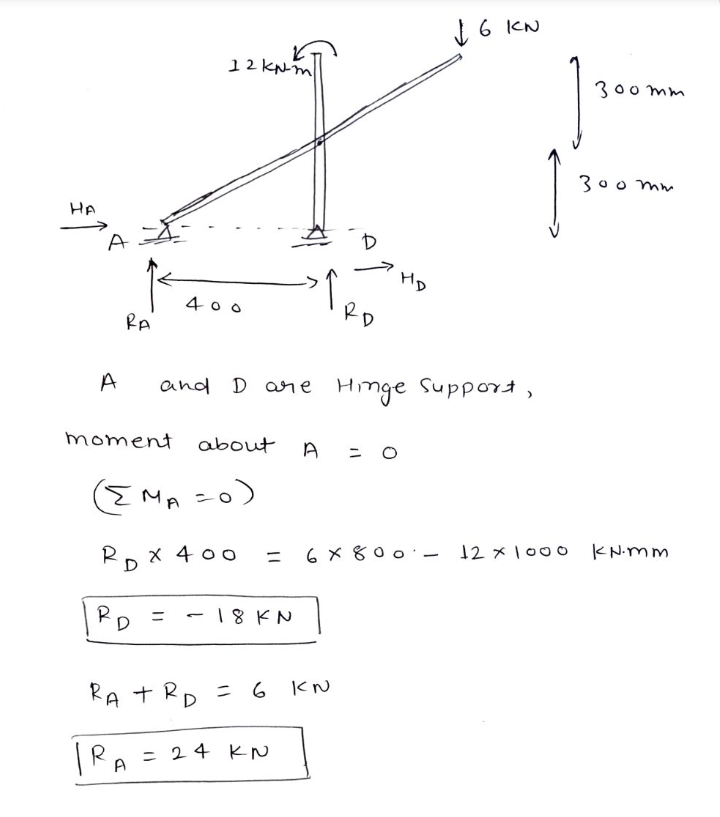 ↓ 6 KN
12 KN-m
300 mm
300 mm
HA
A
D
HD
400
RA
RD
A and D are Hinge Support,
moment about A = 0
(Σ MA = 0)
RD × 400 = 6 × 800 - 12 × 1000 KN.mm
RD = - 18 KN
RA + RD = 6 KN
RA = 24 KN